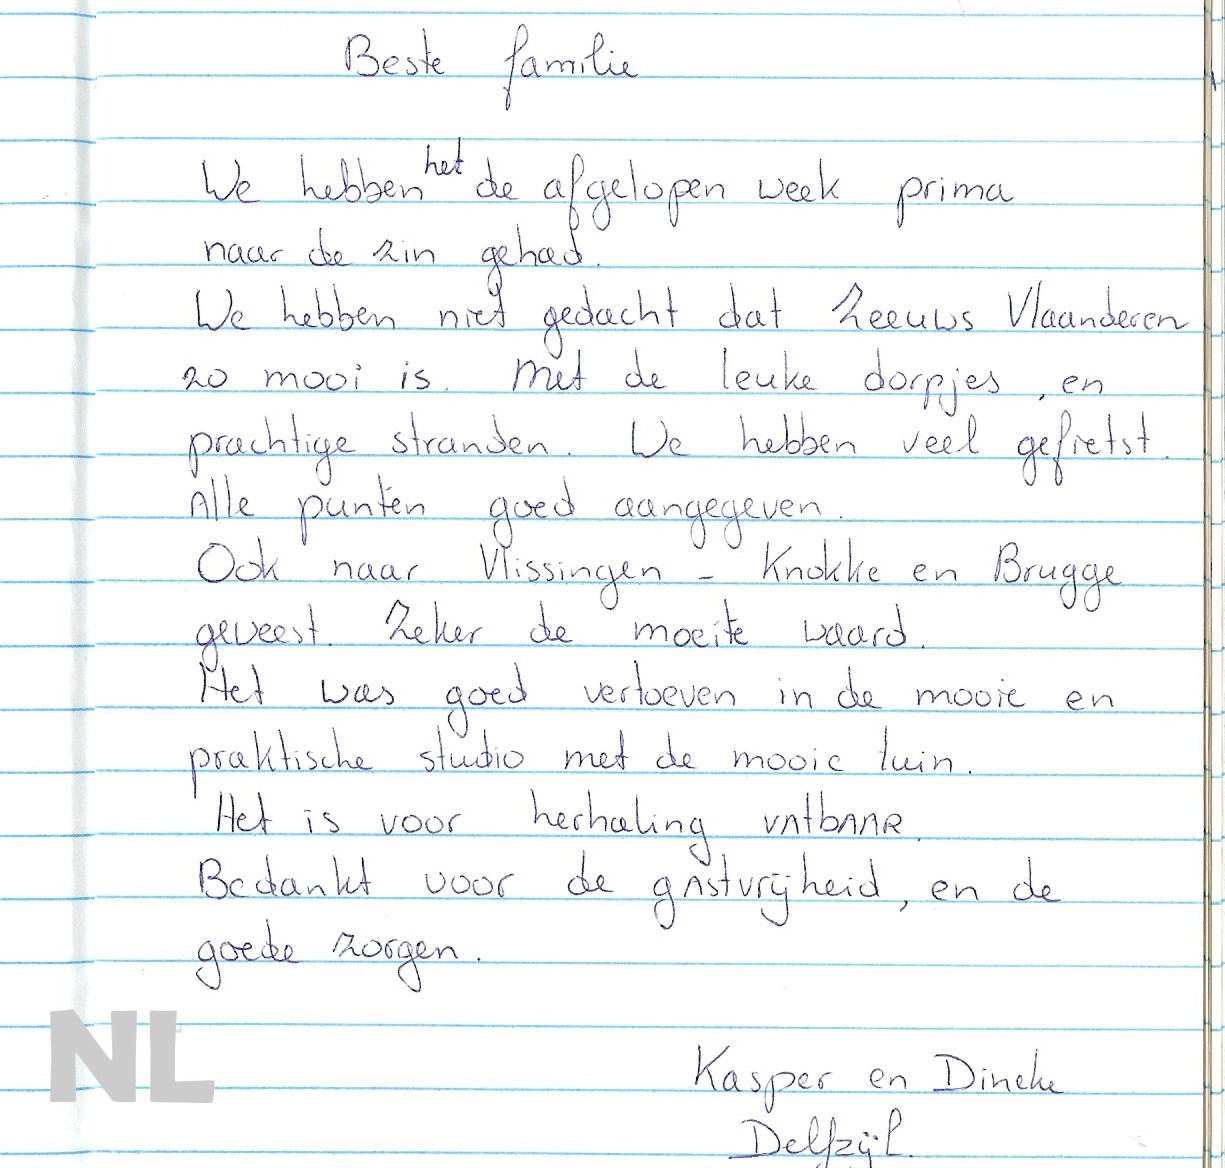 Beste familie
We hebben het de afgelopen week prima
naar de zin gehad.
We hebben niet gedacht dat Zeeuws Vlaanderen
zo mooi is. Met de leuke dorpjes, en
prachtige stranden. We hebben veel gefietst.
Alle punten goed aangegeven.
Ook naar Vlissingen - Knokke en Brugge
geweest. Zeker de moeite waard.
Het was goed vertoeven in de mooie en
praktische studio met de mooie tuin.
Het is voor herhaling vatbaar.
Bedankt voor de gastvrijheid, en de
goede zorgen.
NL
Kasper en Dineke
Delfzijl.